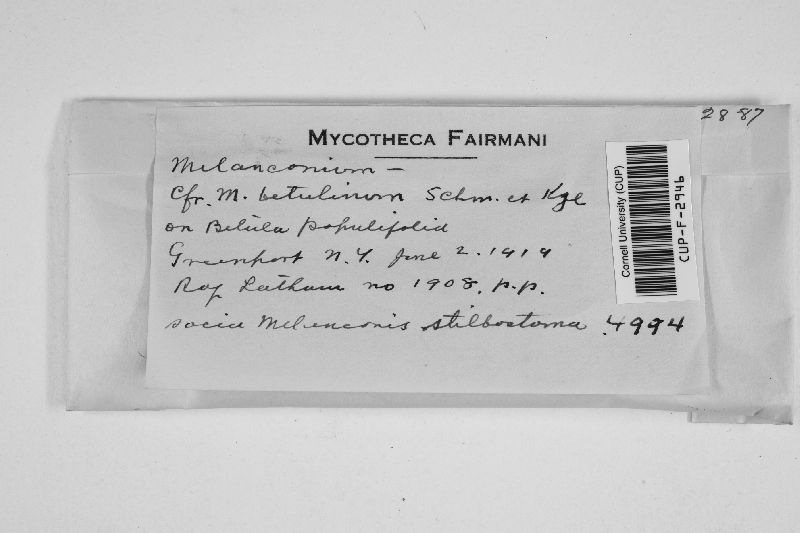 2887
MYCOTHECA FAIRMANI
Melanconium –
Cfr. M. betulinum Schm. et Kze
on Betula populifolia
Greenport N.Y. June 2. 1919
Roy Latham no 1908. p.p.
socia Melanconis stilbostoma 4994
Cornell University (CUP)
CUP-F-2946